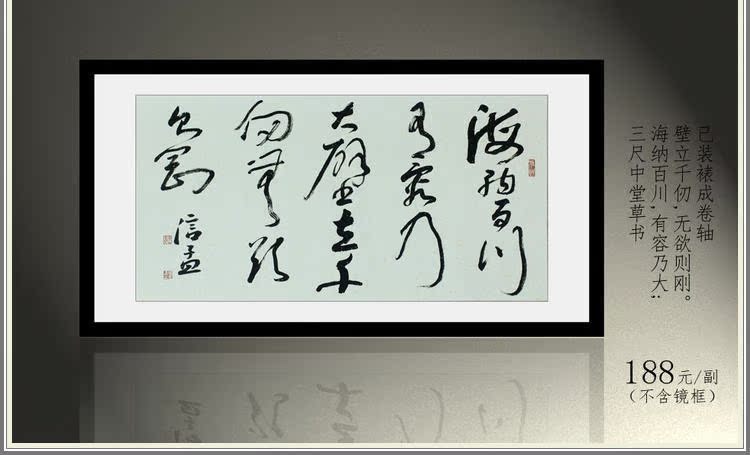 海納百川
有容乃
大壁立千
仞無欲
則剛
信孟
三尺中堂草书
海纳百川,有容乃大;
壁立千仞,无欲则刚。
已装裱成卷轴
188元/副
(不含镜框)